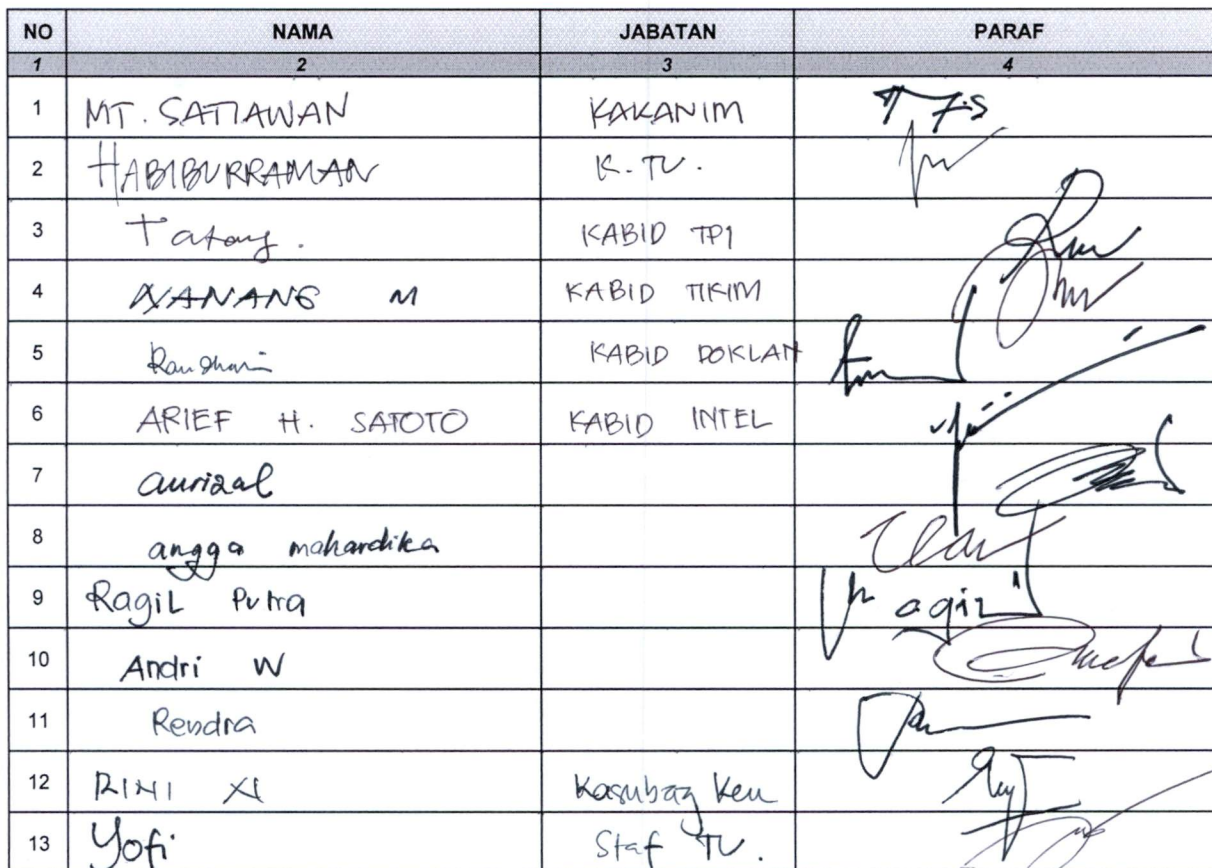 NO NAMA JABATAN PARAF
1 2 3 4
1 MT. SATIAWAN KAKANIM
2 HABIBURRAMAN K. TU.
3 Tatang. KABID TPI
4 NANANG M KABID TIKIM
5 KABID DOKLAN
6 ARIEF H. SATOTO KABID INTEL
7 aurizal
8 angga mahardika
9 RagiL Putra agiL
10 Andri W
11 Rendra
12 RINI Kasubag Keu
13 Yofi Staf TU.